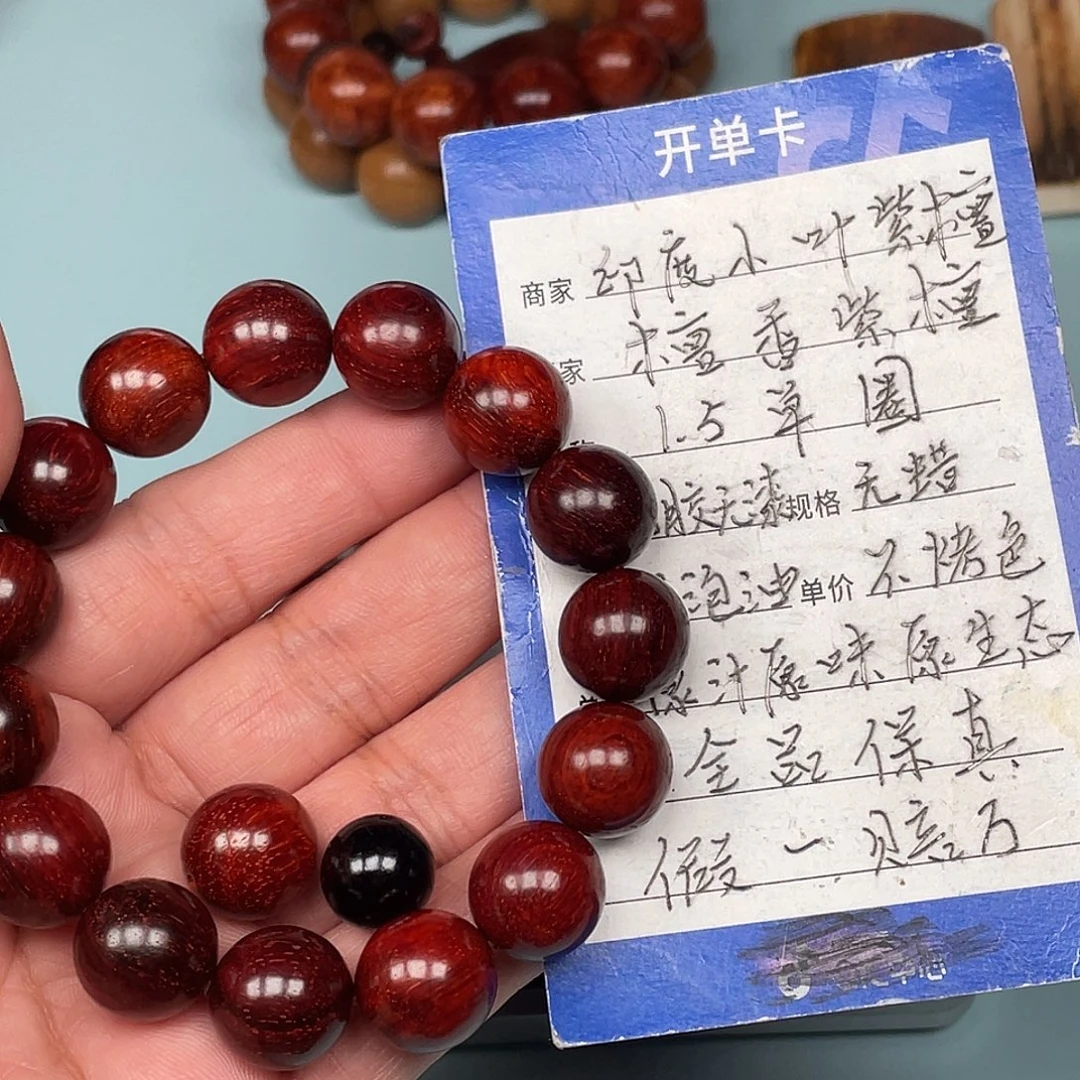 开单卡
商家 印度小叶紫檀
家 檀香紫檀
1.5单圈
胶无漆 规格 无蜡
泡油 单价 不烤色
原汁原味原生态
全品保真
假一赔万